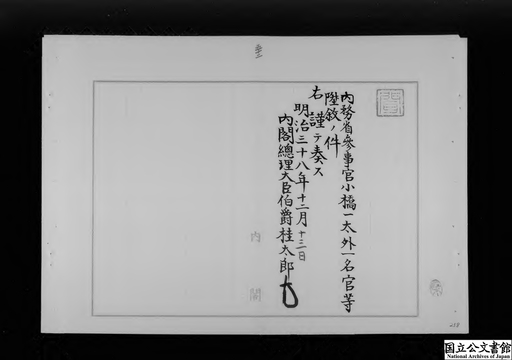 内務省參事官小橋一太外一名官等
陞敘ノ件
右謹テ奏ス
明治三十八年十二月十三日
内閣總理大臣伯爵桂太郎
内閣
国立公文書館
National Archives of Japan